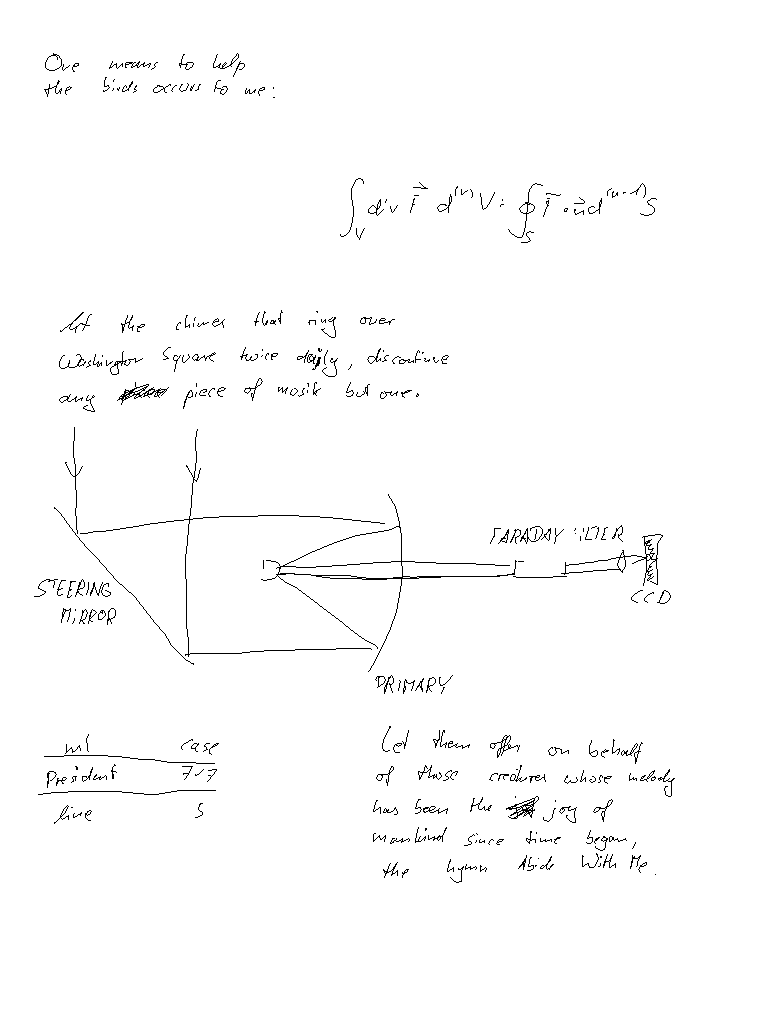 One means to help
the birds occurs to me:
∫_V div F⃗ d^(n) V = ∮_S F⃗ · n⃗ d^(n-1) S
let the chimes that ring over
Washington Square twice daily, discontinue
any piece of mosik but one.
FARADAY FILTER
STEERING
MIRROR
CCD
PRIMARY
ml case
President 7-7
line 5
Let them offer on behalf
of those creatures whose melody
has been the joy of
mankind since time began,
the hymn Abide With Me.